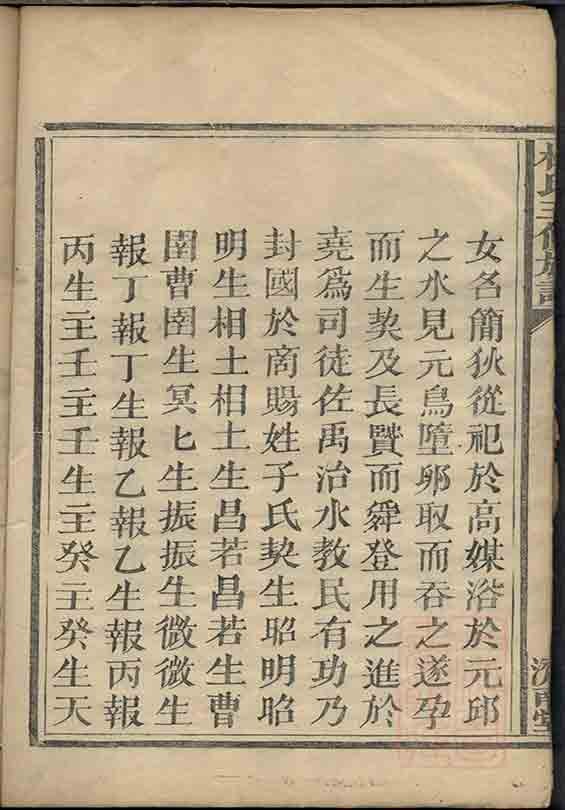 氏三修族譜
女名簡狄從祀於高媒浴於元邱
之水見元鳥墮卵取而吞之遂孕
而生契及長賢而舜登用之進於
堯爲司徒佐禹治水教民有功乃
封國於商賜姓子氏契生昭明昭
明生相土相土生昌若昌若生曹
圉曹圉生冥匕生振振生微微生
報丁報丁生報乙報乙生報丙報
丙生主壬主壬生主癸主癸生天
堂